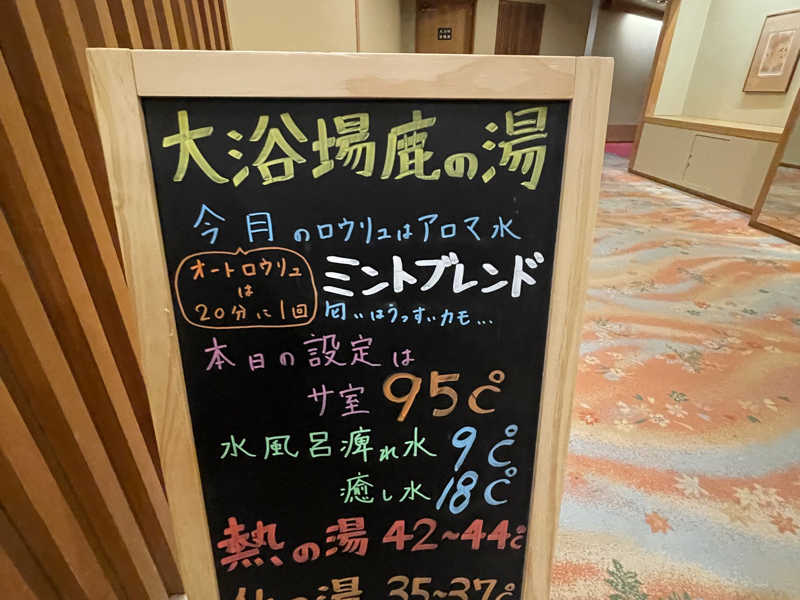 大浴場鹿の湯
今月のロウリュはアロマ水
オートロウリュ
は
20分に1回
ミントブレンド
匂いはうっすぃカモ...
本日の設定は
サ室 95℃
水風呂痺れ水 9℃
癒し水 18℃
熱の湯 42~44℃
の湯 35~37℃